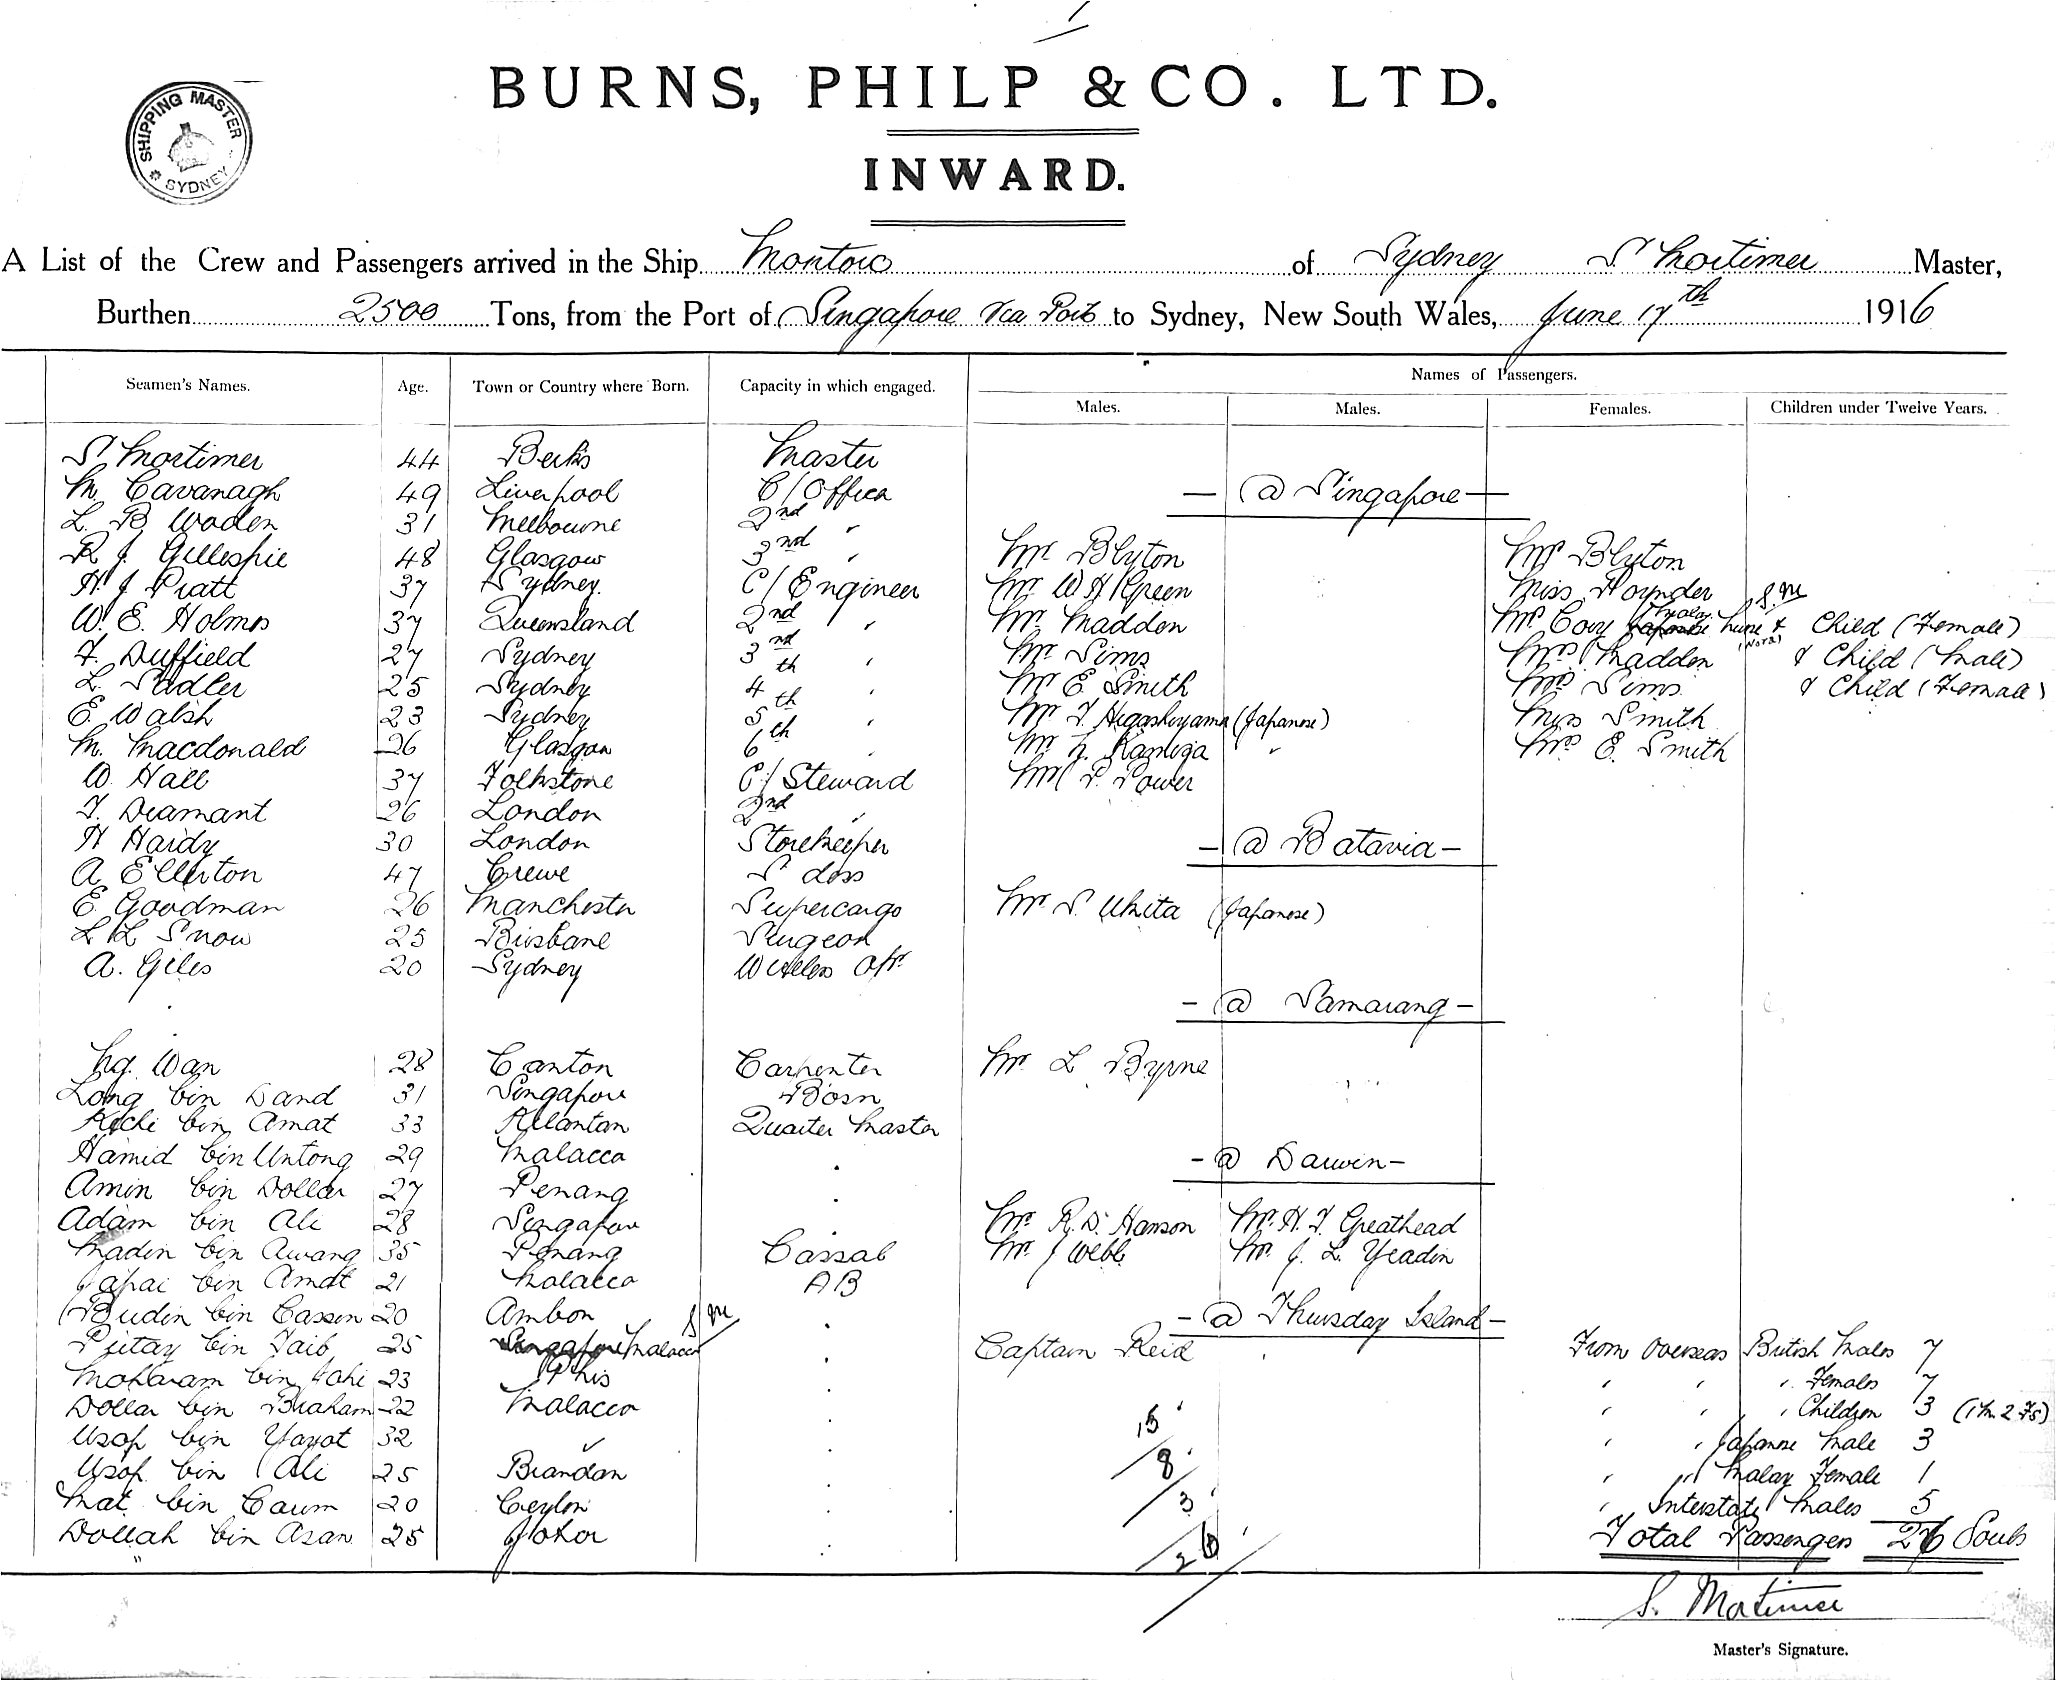 BURNS, PHILP & CO. LTD.
SHIPPING MASTER
SYDNEY
INWARD.
A List of the Crew and Passengers arrived in the Ship Montoro of Sydney S Mortimer Master,
Burthen 2500 Tons, from the Port of Singapore via Ports to Sydney, New South Wales, June 17th 1916
Seamen's Names. Age. Town or Country where Born. Capacity in which engaged. Names of Passengers.
Males. Males. Females. Children under Twelve Years.
S Mortimer 44 Berks Master
M. Cavanagh 49 Liverpool C/Officer - @ Singapore -
L. B Waden 31 Melbourne 2nd "
R J. Gillespie 48 Glasgow 3rd " Mr Blyton Mrs Blyton
H. J Pratt 37 Sydney. C/Engineer Mr W H Green Miss Poynder
W. E. Holmes 37 Queensland 2nd " Mr Madden Mrs Cory Malay Nurse & Child (Female)
F. Duffield 27 Sydney 3rd " Mr Sims Mrs Madden & Child (Male)
L. Sadler 25 Sydney 4th " Mr E. Smith Mrs Sims & Child (Female)
E. Walsh 23 Sydney 5th " Mr T. Higashiyama (Japanese) Miss Smith
M. Macdonald 26 Glasgow 6th " Mr Kamiga " Mrs E. Smith
W. Hall 37 Folkstone C/Steward Mr P. Power
F. Diamant 26 London 2nd "
H Hardy 30 London Storekeeper - @ Batavia -
A Ellerton 47 Crewe S dess
E. Goodman 26 Manchester Supercargo Mr S. Ukita (Japanese)
L L Snow 25 Brisbane Surgeon
A. Giles 20 Sydney Wireless Opr.
- @ Samarang -
Ng. Wan 28 Canton Carpenter Mr L Byrne
Long bin Daud 31 Singapore Bosn
Kechi bin Amat 33 Kelantan Quarter Master
Hamid bin Untong 29 Malacca " - @ Darwin -
Amin bin Dollar 27 Penang "
Adam bin Ali 28 Singapore " Mr R. D. Hanson Mr. H. F. Greathead
Madin bin Awang 35 Penang Cassab Mr J Webb Mr. J. L. Yeadin
Japai bin Amat 21 Malacca AB
Budin bin Cassim 20 Ambon " - @ Thursday Island -
Putay bin Taib 25 Singapore Malacca " Captain Reid From Overseas British Males 7
Moharam bin Jahi 23 " " " " Females 7
Dollar bin Braham 22 Malacca " " " " Children 3 (1 M. 2 Fs)
Usop bin Yayot 32 " " " " Japanese Male 3
Usop bin Ali 25 Brandan " " " Malay Female 1
Mat bin Caum 20 Ceylon " " Interstate Males 5
Dollah bin Asan 25 Johor " Total Passengers 26 Souls
15
8
3
26
S. Mortimer
Master's Signature.